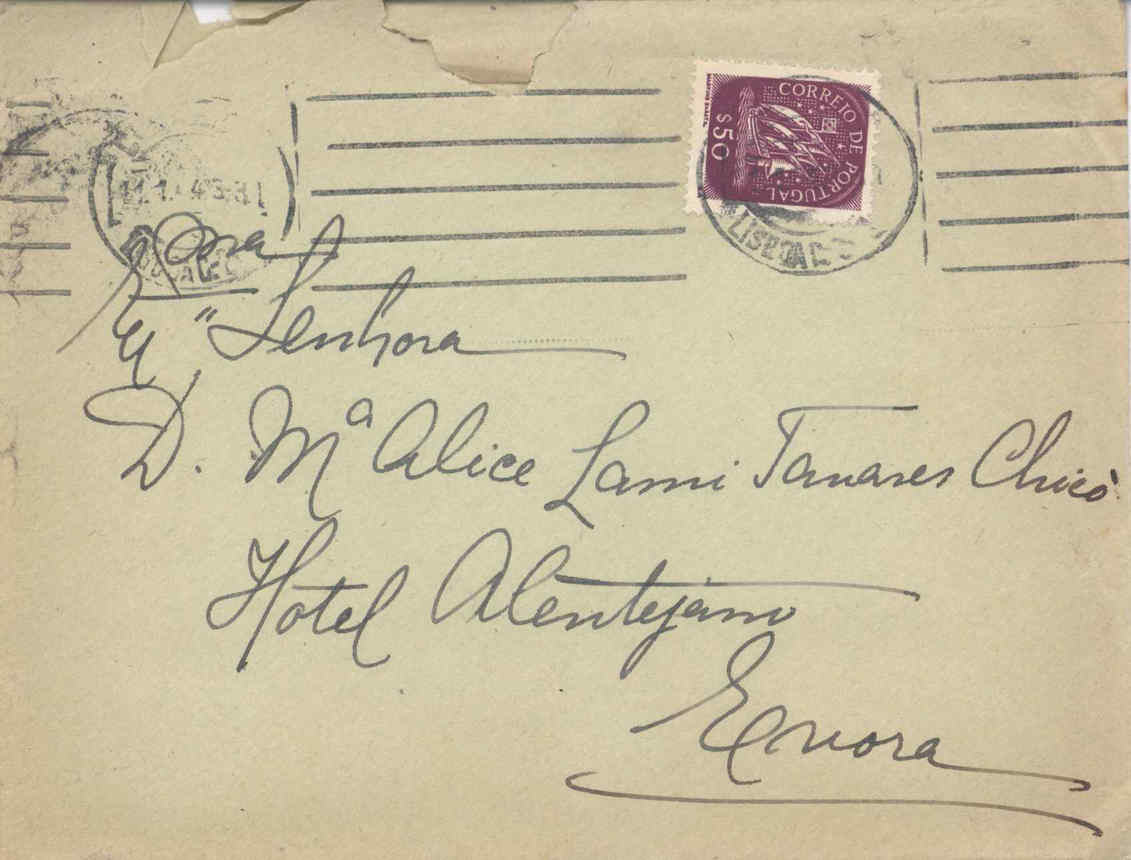 CORREIO DE PORTUGAL
$50
LISBOA
Exma
Senhora
D. Mª Alice Lami Tavares Chicó
Hotel Alentejano
Evora